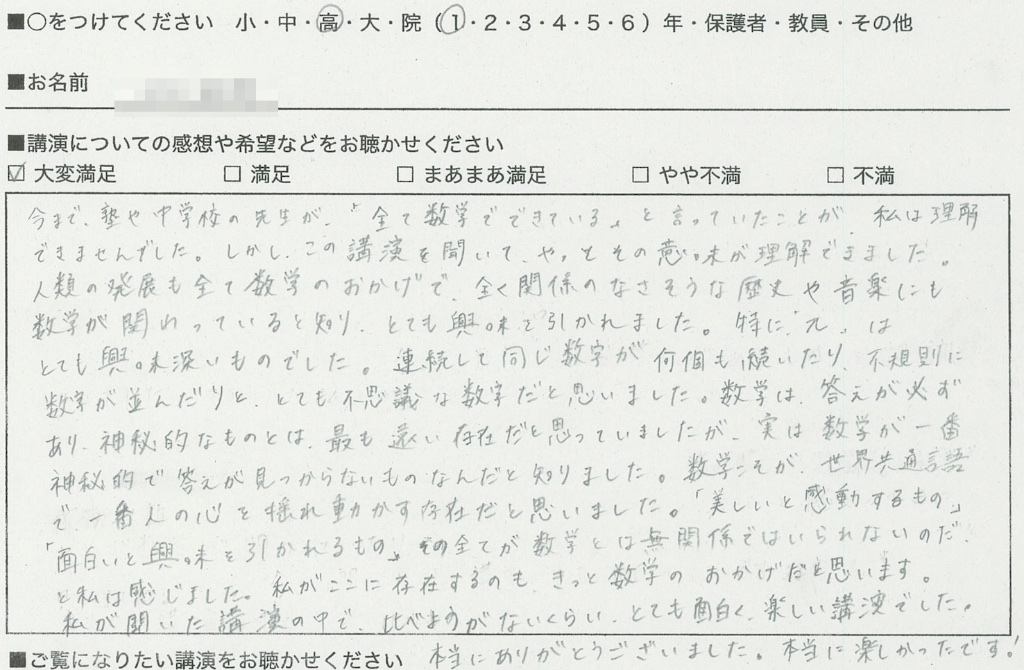 ■○をつけてください　小・中・高・大・院（1・2・3・4・5・6）年・保護者・教員・その他
■お名前
■講演についての感想や希望などをお聴かせください
☑ 大変満足　□ 満足　□ まあまあ満足　□ やや不満　□ 不満
今まで、塾や中学校の先生が、「全て数学でできている」と言っていたことが、私は理解
できませんでした。しかし、この講演を聞いて、やっとその意味が理解できました。
人類の発展も全て数学のおかげで、全く関係のなさそうな歴史や音楽にも
数学が関わっていると知り、とても興味を引かれました。特に「π」は
とても興味深いものでした。連続して同じ数字が何個も続いたり、不規則に
数字が並んだりと、とても不思議な数字だと思いました。数学は、答えが必ず
あり、神秘的なものとは、最も遠い存在だと思っていましたが、実は数学が一番
神秘的で答えが見つからないものなんだと知りました。数学こそが、世界共通言語
で一番人の心を揺れ動かす存在だと思いました。「美しいと感動するもの」
「面白いと興味を引かれるもの」その全てが数学とは無関係ではいられないのだ、
と私は感じました。私がここに存在するのも、きっと数学のおかげだと思います。
私が聞いた講演の中で、比べようがないくらい、とても面白く、楽しい講演でした。
■ご覧になりたい講演をお聴かせください　本当にありがとうございました。本当に楽しかったです！